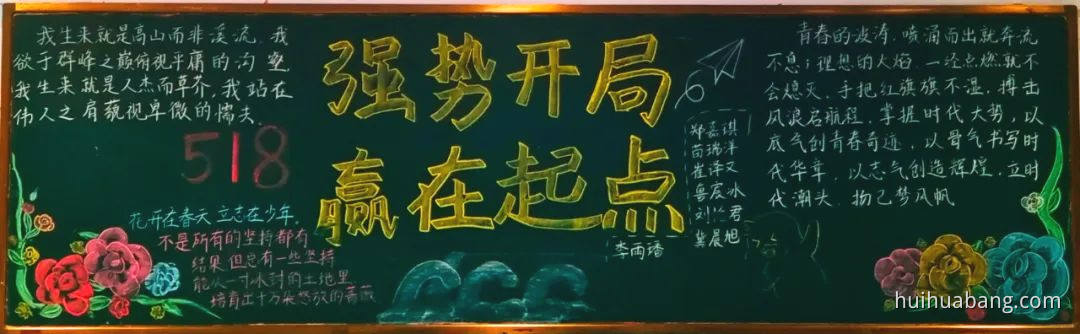 我生来就是高山而非溪流,我
欲于群峰之巅俯视平庸的沟壑
我生来就是人杰而草芥,我站在
伟人之肩藐视卑微的懦夫
518
花开在春天 立志在少年。
不是所有的坚持都有
结果 但总有一些坚持
能从一寸冰封的土地里
培育出十万朵怒放的蔷薇
强势开局
赢在起点
郑孟琪
苗瑞洋
崔译文
鲁宸冰
刘 君
冀晨旭
李雨璠
青春的波涛,喷涌而出就奔流
不息;理想的火焰,一经点燃就不
会熄灭。手把红旗旗不湿,搏击
风浪启航程。掌握时代大势,以
底气创青春奇迹,以骨气书写时
代华章,以志气创造辉煌,立时
代潮头,扬己梦风帆
huihuabang.com